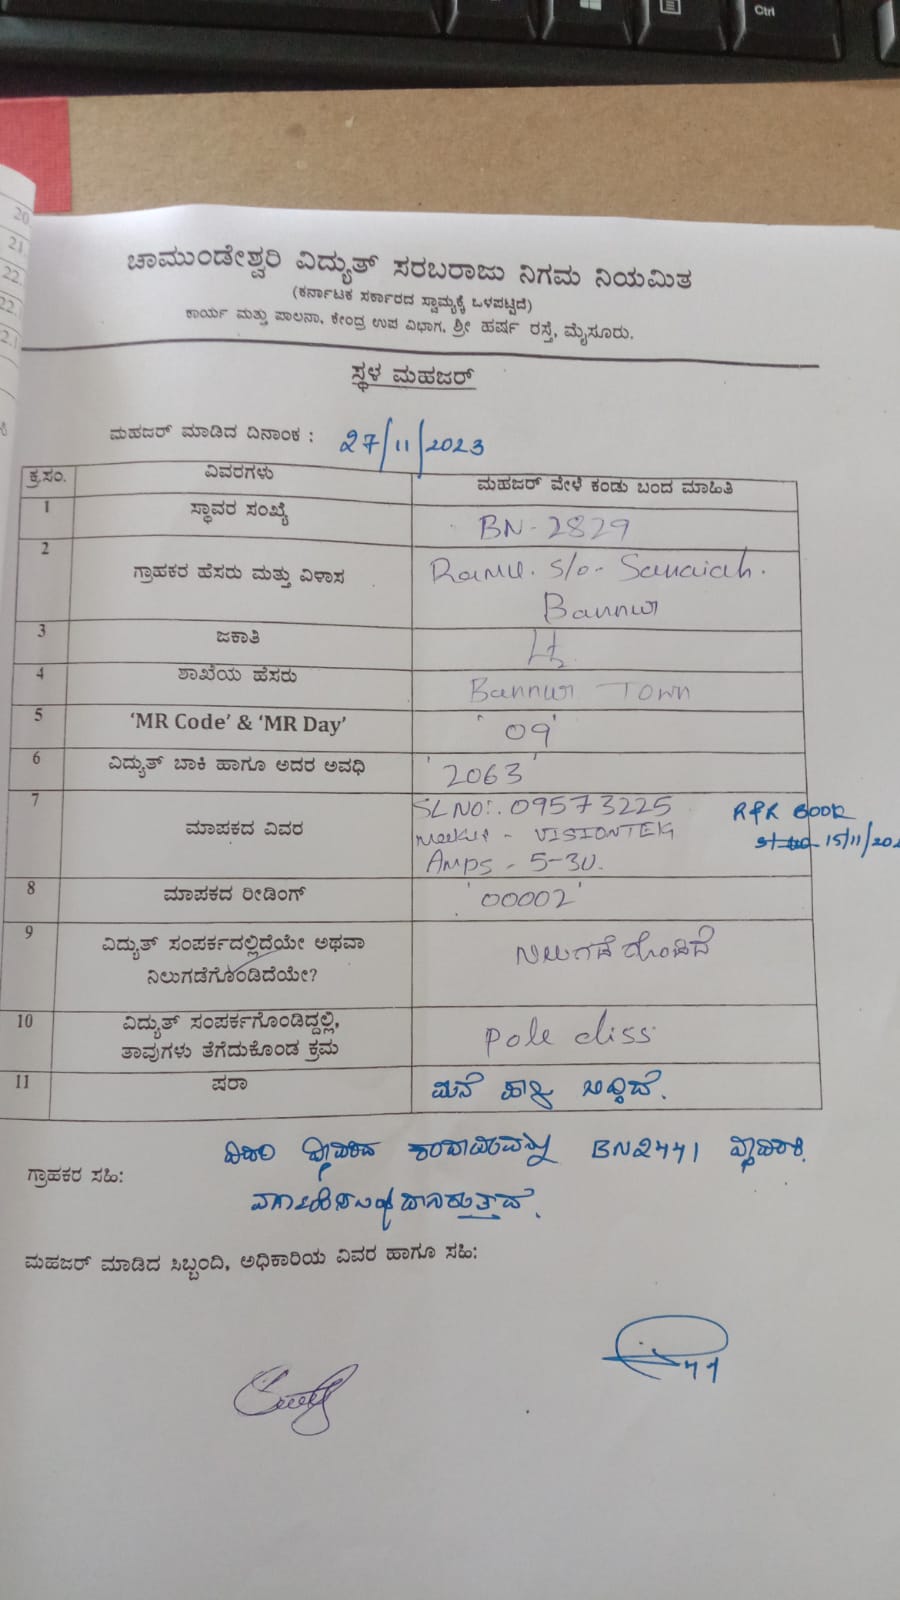 Ctrl
20.
21.
22.
ಚಾಮುಂಡೇಶ್ವರಿ ವಿದ್ಯುತ್ ಸರಬರಾಜು ನಿಗಮ ನಿಯಮಿತ
(ಕರ್ನಾಟಕ ಸರ್ಕಾರದ ಸ್ವಾಮ್ಯಕ್ಕೆ ಒಳಪಟ್ಟಿದೆ)
ಕಾರ್ಯ ಮತ್ತು ಪಾಲನಾ, ಕೇಂದ್ರ ಉಪ ವಿಭಾಗ, ಶ್ರೀ ಹರ್ಷ ರಸ್ತೆ, ಮೈಸೂರು.
ಸ್ಥಳ ಮಹಜರ್
ಮಹಜರ್ ಮಾಡಿದ ದಿನಾಂಕ : 27/11/2023
ಕ್ರ.ಸಂ. ವಿವರಗಳು ಮಹಜರ್ ವೇಳೆ ಕಂಡು ಬಂದ ಮಾಹಿತಿ
1 ಸ್ಥಾವರ ಸಂಖ್ಯೆ BN-2829
2 ಗ್ರಾಹಕರ ಹೆಸರು ಮತ್ತು ವಿಳಾಸ Ramu. S/o-
Bannur
3 ಜಕಾತಿ
4 ಶಾಖೆಯ ಹೆಸರು Bannur Town
5 ‘MR Code’ & ‘MR Day’ '09'
6 ವಿದ್ಯುತ್ ಬಾಕಿ ಹಾಗೂ ಅದರ ಅವಧಿ '2063'
7 ಮಾಪಕದ ವಿವರ SL NO:. 09573225
- VISIONTEK
Amps - 5-30.
R&R BOOK
15/11/202
8 ಮಾಪಕದ ರೀಡಿಂಗ್ '00002'
9 ವಿದ್ಯುತ್ ಸಂಪರ್ಕದಲ್ಲಿದೆಯೇ ಅಥವಾ
ನಿಲುಗಡೆಗೊಂಡಿದೆಯೇ?
ನಿಲುಗಡೆಗೊಂಡಿದೆ
10 ವಿದ್ಯುತ್ ಸಂಪರ್ಕಗೊಂಡಿದ್ದಲ್ಲಿ,
ತಾವುಗಳು ತೆಗೆದುಕೊಂಡ ಕ್ರಮ
Pole diss
11 ಷರಾ ಮನೆ ಹಾಳು ಬಿದ್ದಿದೆ.
BN2441
ಗ್ರಾಹಕರ ಸಹಿ:
ಮಹಜರ್ ಮಾಡಿದ ಸಿಬ್ಬಂದಿ, ಅಧಿಕಾರಿಯ ವಿವರ ಹಾಗೂ ಸಹಿ: